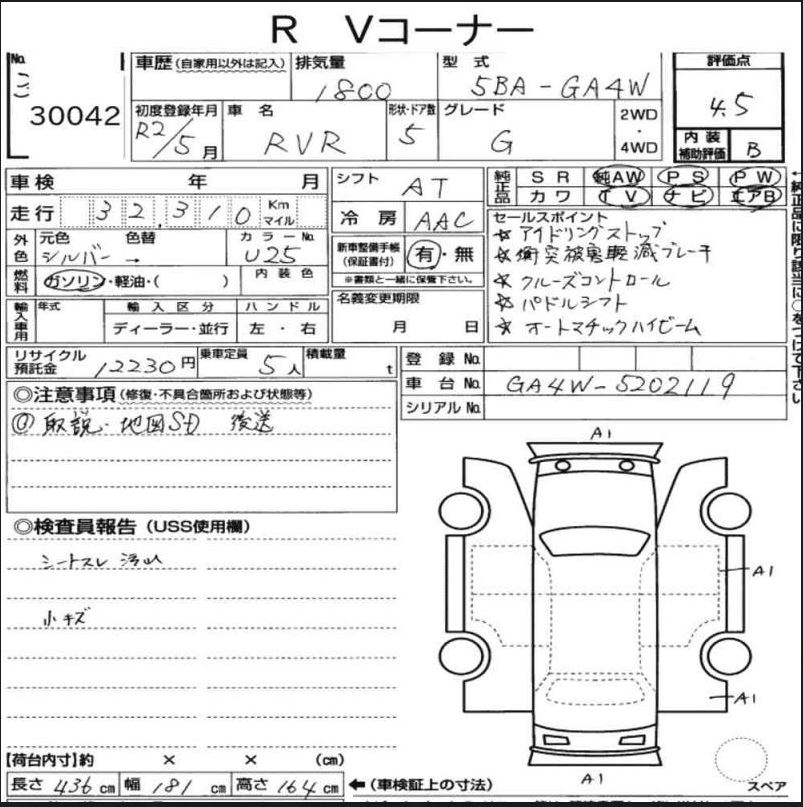 R Vコーナー
No. 30042
車歴 (自家用以外は記入) 排気量 1800 型式 5BA-GA4W 評価点 4.5
初度登録年月 R2/5月 車名 RVR 形状・ドア数 5 グレード G 2WD・4WD 内装補助評価 B
車検 年 月 シフト AT 純正品 SR 純AW PS PW
カワ TV ナビ エアB
走行 32,310 Km マイル 冷房 AAC
外色 元色 シルバー 色替 → カラーNo. U25
燃料 ガソリン・軽油・( ) 内装色
新車整備手帳(保証書付) 有・無
※書類と一緒に保管下さい。
セールスポイント
☆ アイドリングストップ
☆ 衝突被害軽減ブレーキ
☆ クルーズコントロール
☆ パドルシフト
☆ オートマチックハイビーム
輸入車用 年式 輸入区分 ディーラー・並行 ハンドル 左・右
名義変更期限 月 日
リサイクル預託金 12230円 乗車定員 5人 積載量 t
登録No.
車台No. GA4W-5202119
シリアルNo.
◎注意事項(修復・不具合箇所および状態等)
取説・地図SD 後送
◎検査員報告(USS使用欄)
シートスレ 汚れ
小キズ
A1
A1
A1
A1
スペア
【荷台内寸】約 × × (cm)
長さ 436cm 幅 181cm 高さ 164cm ←(車検証上の寸法)